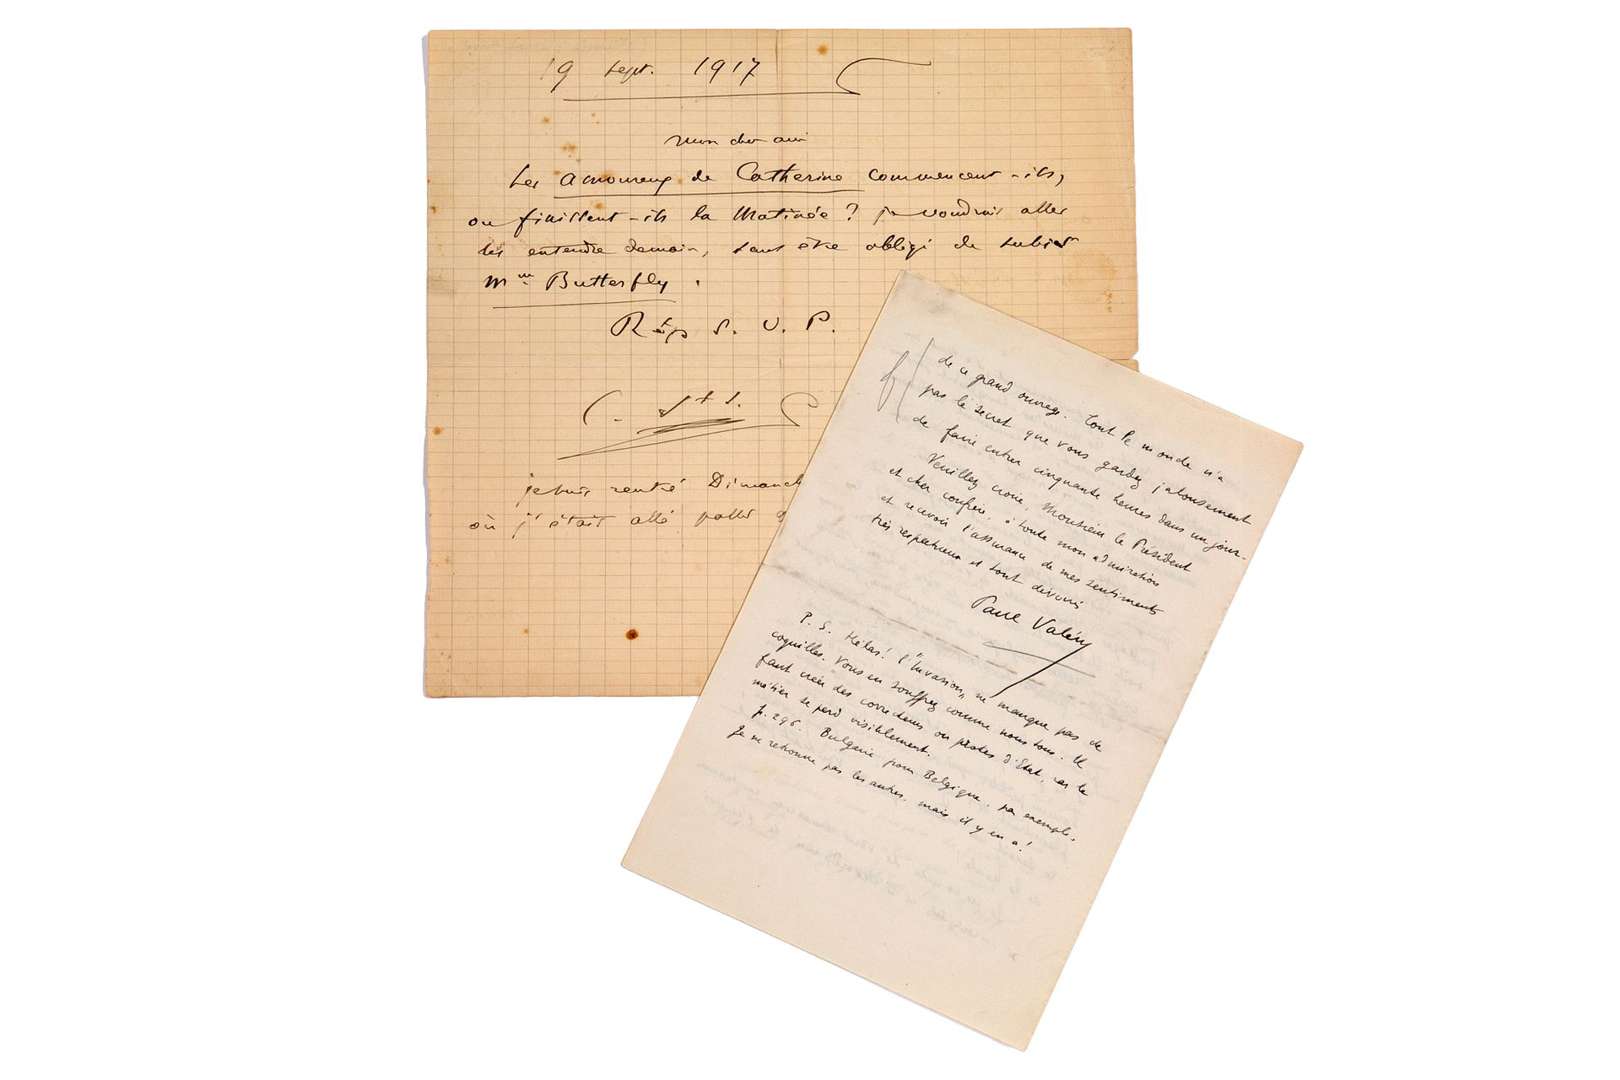 19 Sept. 1917
Mon cher ami
Les Amoureux de Catherine commencent-ils,
ou finissent-ils la Matinée ? je voudrais aller
les entendre demain, sans être obligé de subir
Mme Butterfly.
Rép S. V. P.
C. St S.
je suis rentré Dimanch
où j'étais allé
de ce grand ouvrage. Tout le monde n'a
pas le secret que vous gardez jalousement
de faire entrer cinquante heures dans un jour.-
Veuillez croire, Monsieur le Président
et cher confrère, à toute mon admiration
et recevoir l'assurance de mes sentiments
très respectueux et tout dévoués
Paul Valéry
P. S. Hélas! l'"Invasion" ne manque pas de
coquilles. Vous en souffrez comme nous tous. Il
faut créer des correcteurs ou protes d'Etat, car le
métier se perd visiblement.
p. 296. Bulgarie pour Belgique, par exemple.
Je ne retrouve pas les autres, mais il y en a!